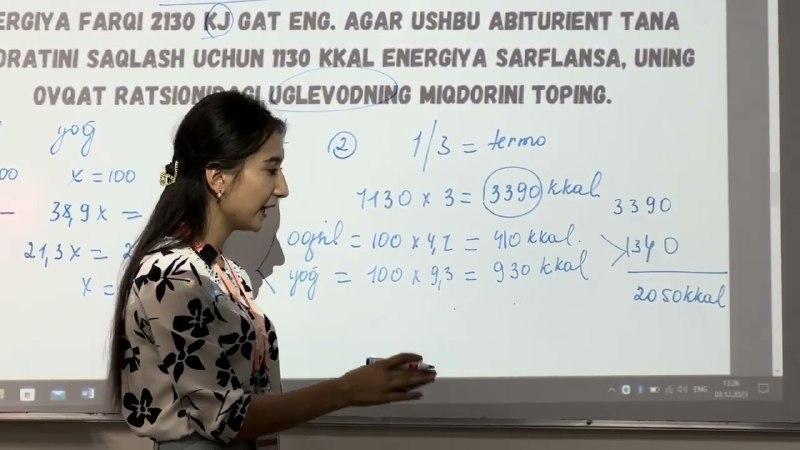 ERGIYA FARQI 2130 KJ GAT ENG. AGAR USHBU ABITURIENT TANA
ORATINI SAQLASH UCHUN 1130 KKAL ENERGIYA SARFLANSA, UNING
OVQAT RATSIONIDAGI UGLEVODNING MIQDORINI TOPING.
yog'
x = 100
38,9x =
21,3x = 2
x =
2
1/3 = termo
1130 x 3 = 3390 kkal
oqsil = 100 x 4,1 = 410 kkal.
yog' = 100 x 9,3 = 930 kkal
3390
1340
2050kkal
ENG
13:26
03.12.2023